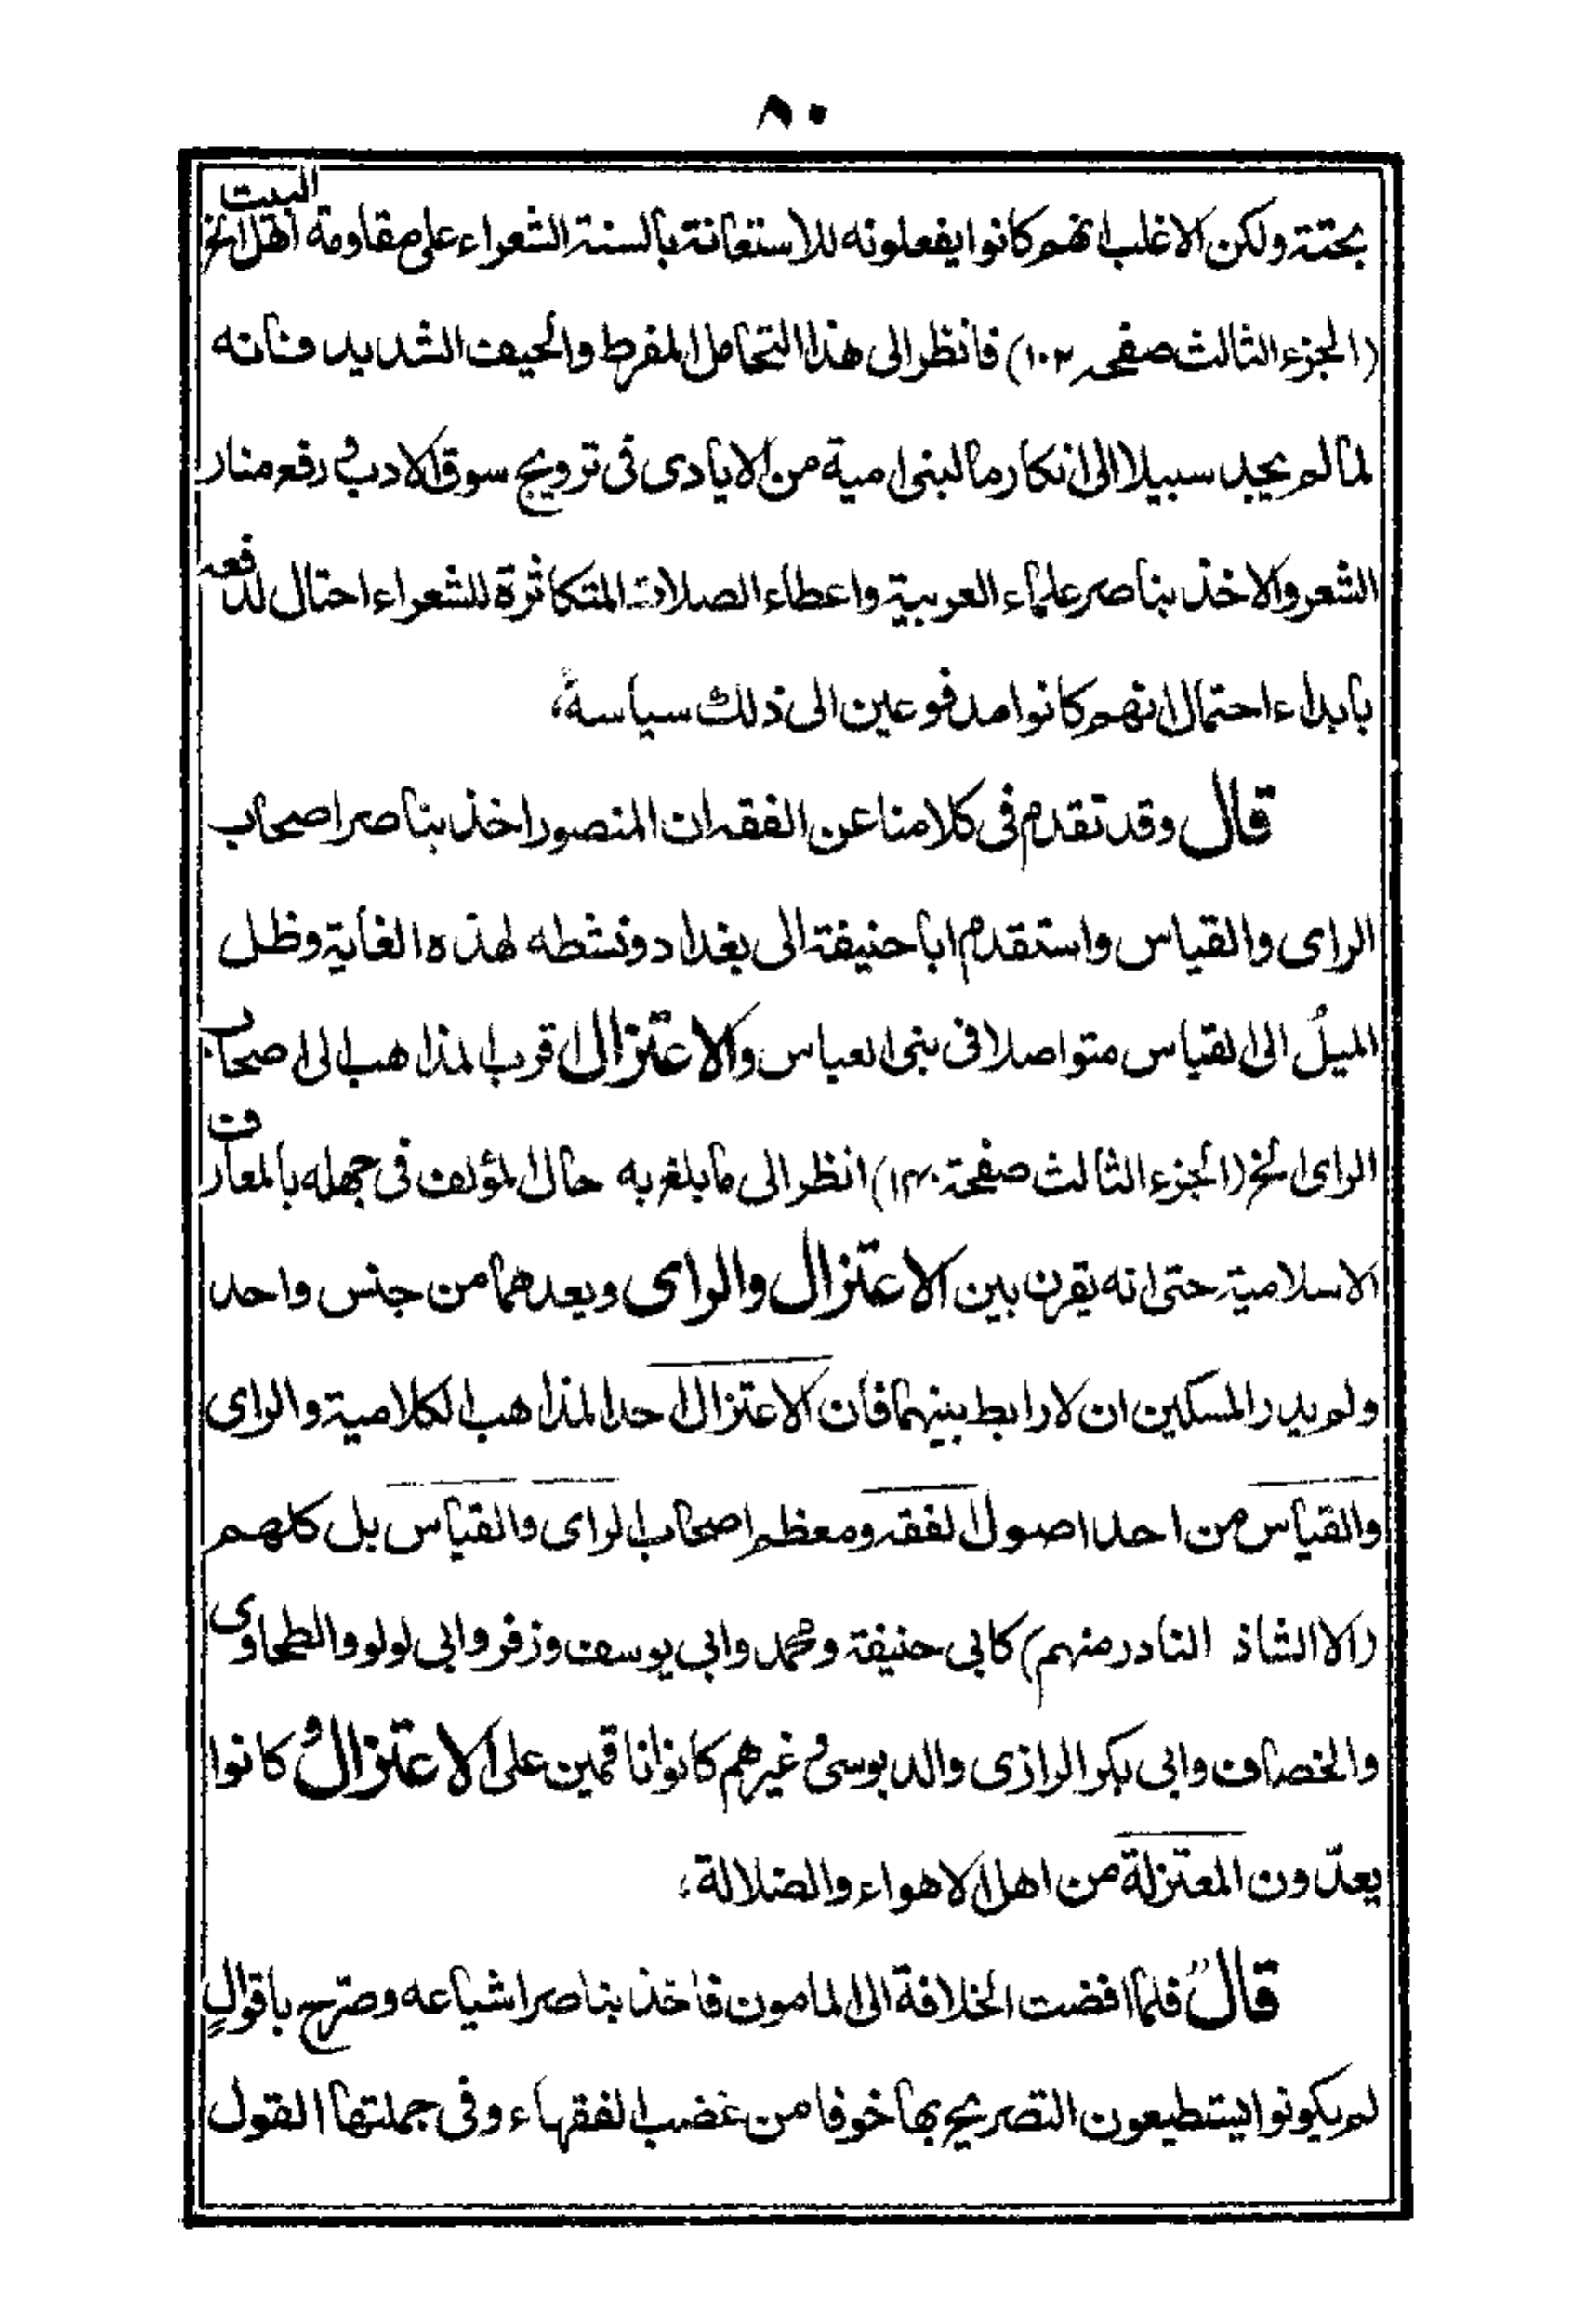 ٨٠
بحتة ولكن الاغلب انهم كانوا يفعلونه للاستعانة بألسنة الشعراء على مقاومة اهل البيت الخ
(الجزء الثالث صفحه ١٠٣) فانظر الى هذا التحامل المفرط والحيف الشديد فأنه
لما لم يجد سبيلا الى انكار ما لبنى امية من الايادى فى ترويج سوق الادب و رفع منار
الشعر والاخذ بناصر علماء العربية واعطاء الصلات المتكاثرة للشعراء احتال لدفعه
بابداء احتمال انهم كانوا مدفوعين الى ذلك سياسة،
قال وقد تقدم فى كلامنا عن الفقه ان المنصور اخذ بناصر اصحاب
الراى والقياس واستقدم ابا حنيفة الى بغداد ونشطه لهذه الغاية وظل
الميلُ الى القياس متواصلا فى بنى العباس والاعتزال اقرب المذاهب الى اصحاب
الراى الخ (الجزء الثالث صفحة ١٣٠) انظر الى ما بلغ به حال المؤلف فى جهله بالمعارف
الاسلامية حتى انه يقرن بين الاعتزال والراى ويعدهما من جنس واحد
ولم يدر المسكين ان لا رابط بينهما فان الاعتزال احد المذاهب الكلامية والراى
والقياس من احد اصول الفقه ومعظم اصحاب الراى والقياس بل كلهم
(الا الشاذ النادر منهم) كابى حنيفة ومحمد وابى يوسف وزفر وابى لولو والطحاوى
والخصاف وابى بكر الرازى والدبوسى و غيرهم كانوا ناقمين على الاعتزال و كانوا
يعدّون المعتزلة من اهل الاهواء والضلالة،
قال فلما افضت الخلافة الى المامون فاخذ بناصر اشياعه وصرّح باقوالٍ
لم يكونوا يستطيعون التصريح بها خوفا من غضب الفقهاء وفى جملتها القول